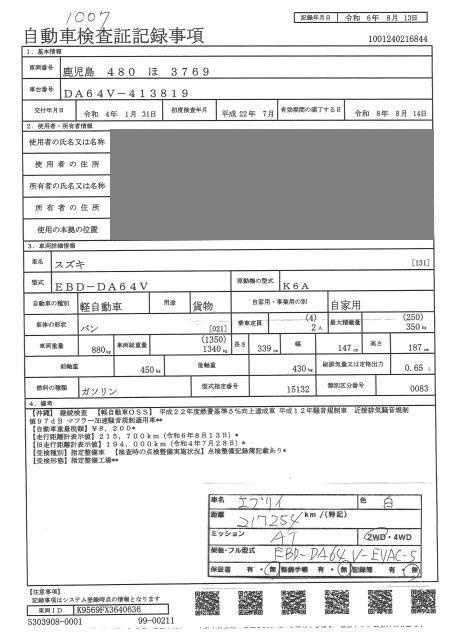 1007
記録年月日 令和 6年 8月 13日
自動車検査証記録事項 1001240216844
1. 基本情報
車両番号 鹿児島 480 ほ 3769
車台番号 DA64V-413819
交付年月日 令和 4年 1月 31日 初度検査年月 平成 22年 7月 有効期間の満了する日 令和 8年 8月 14日
2. 使用者・所有者情報
使用者の氏名又は名称
使用者の住所
所有者の氏名又は名称
所有者の住所
使用の本拠の位置
3. 車両詳細情報
車名 スズキ [131]
型式 EBD-DA64V 原動機の型式 K6A
自動車の種別 軽自動車 用途 貨物 自家用・事業用の別 自家用
車体の形状 バン [021] 乗車定員 (4) 2人 最大積載量 (250) 350kg
車両重量 880kg 車両総重量 (1350) 1340kg 長さ 339cm 幅 147cm 高さ 187cm
前軸重 450kg 後軸重 430kg 総排気量又は定格出力 0.65L
燃料の種類 ガソリン 型式指定番号 15132 類別区分番号 0083
4. 備考
【沖縄】 継続検査 【軽自動車OSS】 平成22年度燃費基準5%向上達成車 平成12年騒音規制車 近接排気騒音規制
値97dB マフラー加速騒音規制適用車**
【自動車重量税額】¥8,200*
【走行距離計表示値】215,700km(令和6年8月13日)*
【旧走行距離計表示値】194,000km(令和4年7月28日)*
【受検種別】指定整備車 【検査時の点検整備実施状況】点検整備記録簿記載あり*
【受検形態】指定整備工場**
車名 エブリイ 色 白
距離 217254 km/(特記)
ミッション AT 2WD・4WD
車検・フル型式 EBD-DA64V-EVAC-S
保証書 有・無 整備手帳 有・無 記録簿 有・無
【注意事項】
記録事項はシステム登録時点の情報となります
車両ID K9569FX3640636
5303908-0001 99-00211